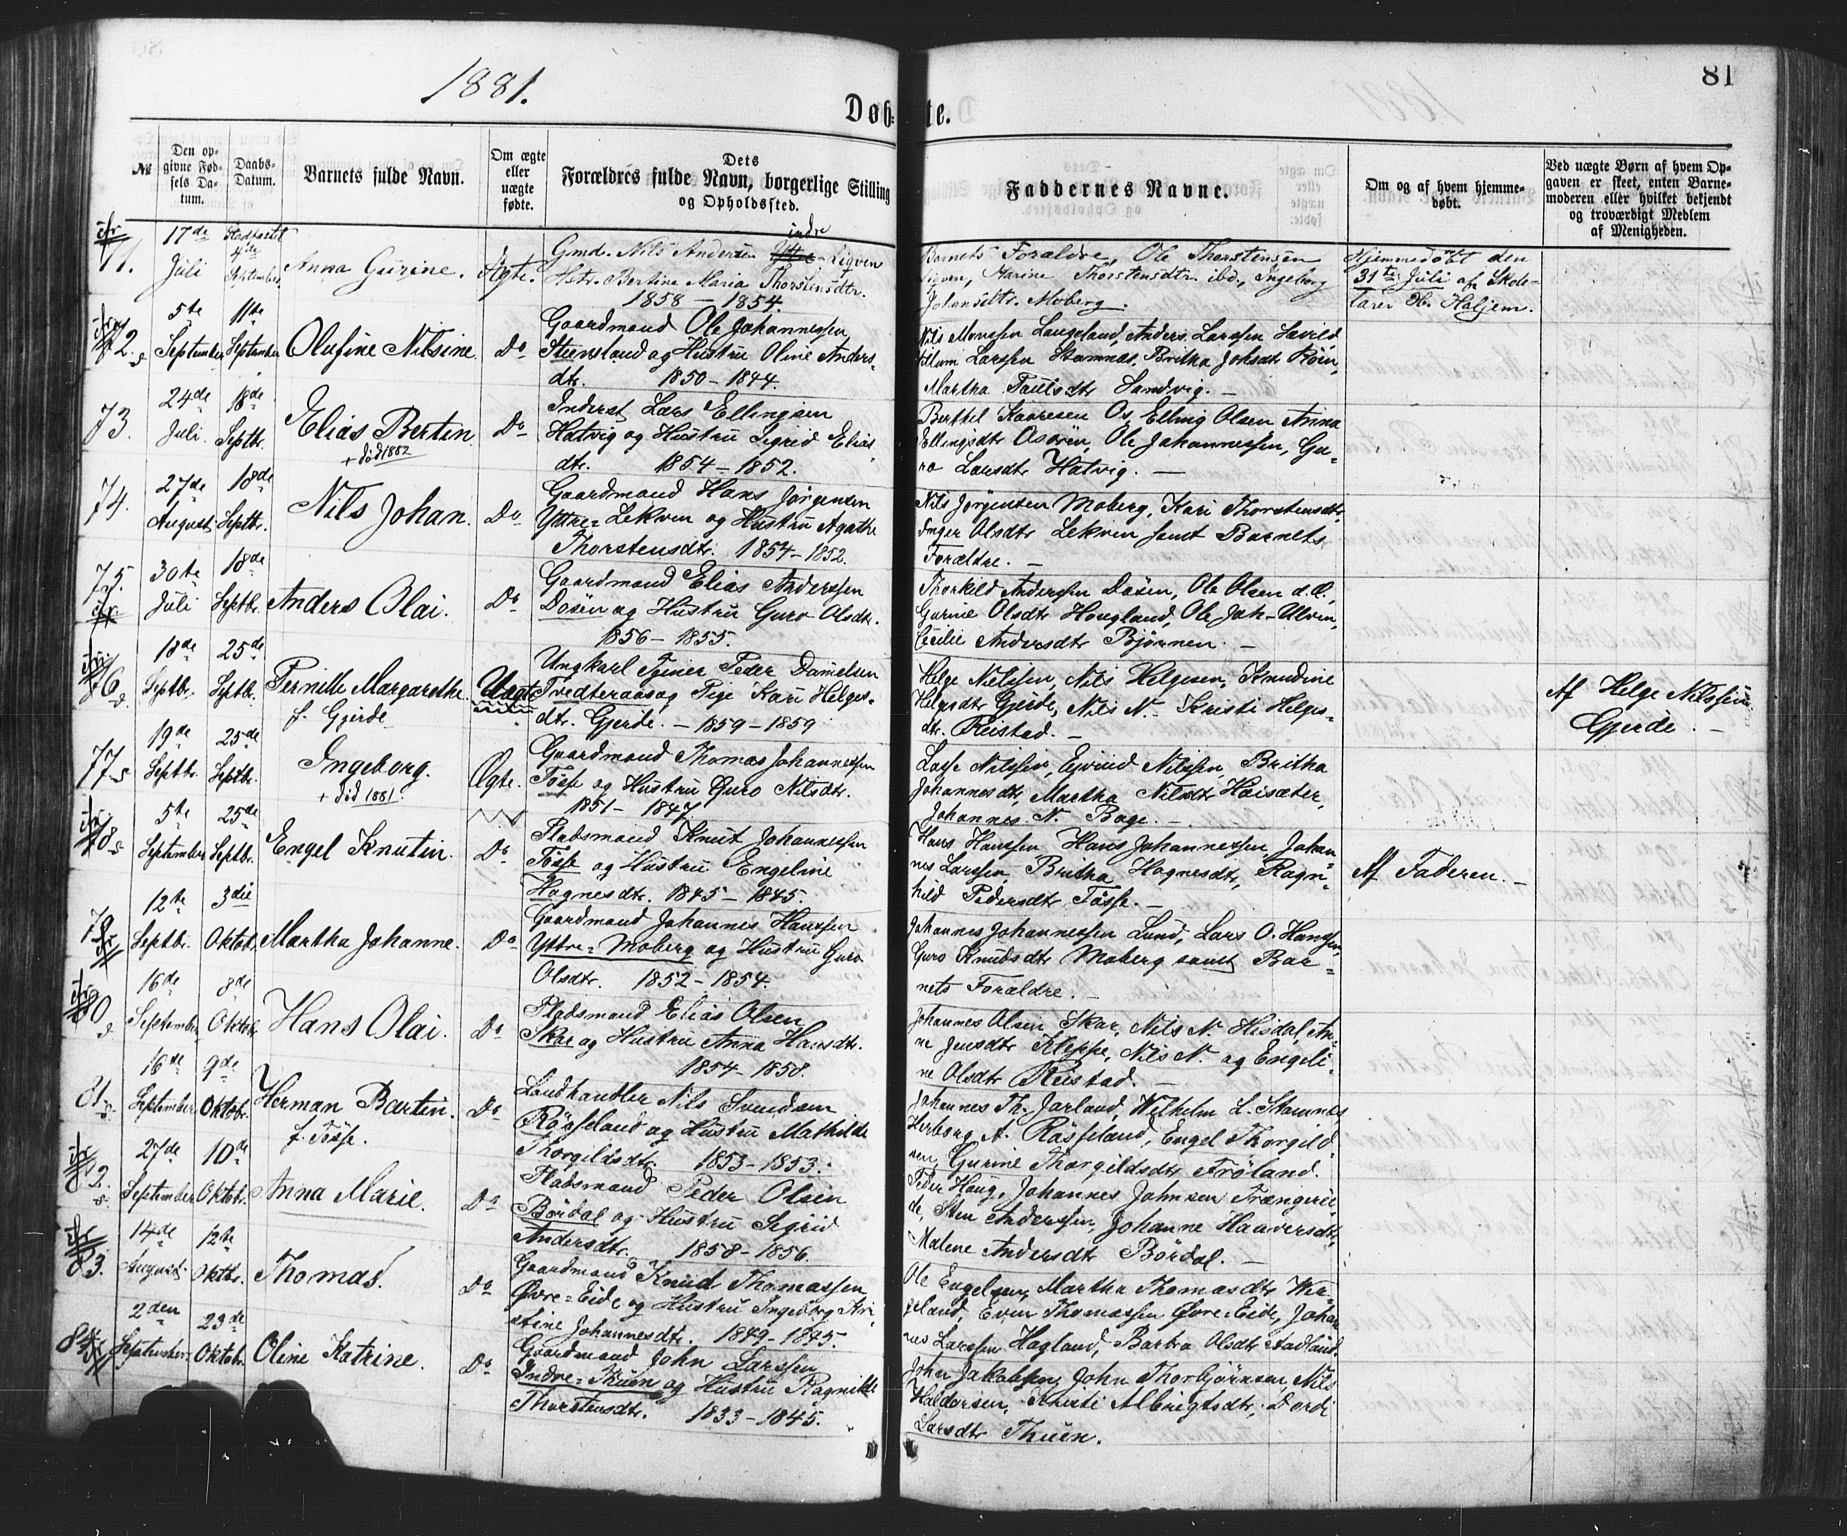 1881.
81
Døbte.
№
Den opgivne Fødsels Datum.
Daabs-Datum.
Barnets fulde Navn.
Om ægte eller uægte fødte.
Dets Forældres fulde Navn, borgerlige Stilling og Opholdssted.
Faddernes Navne.
Om og af hvem hjemmedøbt.
Ved uægte Børn af hvem Opgaven er skeet, enten Barnemoderen eller hvilket bekjendt og troværdigt Medlem af Menigheden.
71.
17de Juli
4de September
Anna Gurine.
Ægte.
indre
Gmd. Nils Andersen Ytre-Liqven
Hstr. Bertine Maria Thorstensdtr.
1858 – 1854.
Barnets Forældre, Ole Thorstensen
Liqven, Marine Thorstensdtr ibd, Ingeborg
Johansdtr. Moberg.
Hjemmedøbt den
31te Juli af Skole-
lærer Haljem.
72.
5te September
11te September
Olufine Nilsine.
Do
Gaardmand Ole Johannessen
Steensland og Hustru Oline Anders-
dtr. 1850 – 1844.
Nils Monssen Laugeland, Anders Larssen
Larssen Stamnæs, Britha Johsdtr
Martha Paulsdtr Sandvig. –
73.
24de Juli
18de Septbr.
Elias Bertin
+ død 1882
Do
Inderst Lars Ellingsen
Hatvig og Hustru Sigrid Elias-
dtr. 1854 – 1852.
Berthel Kaaresen Os, Elling Olsen Anna
Ellingsdtr Osøren, Ole Johannessen, Gu-
ro Larsdtr Hatvig. –
74.
27de August
18de Septbr.
Nils Johan.
Do
Gaardmand Hans Jørgensen
Yttre-Lekven og Hustru Agathe
Thorstensdtr. 1854 – 1852.
Nils Jørgensen Moberg, Kari Thorstensdtr,
Inger Olsdtr Lekven samt Barnets
Forældre. –
75.
30te Juli
18de Septbr.
Anders Olai.
Do
Gaardmand Elias Anderssen
Døsen og Hustru Guro Olsdtr.
1856 – 1855.
Thorkild Anderssen Døsen, Ole Olsen d. O.
Gurine Olsdtr Hougland, Ole Joh. Ulven,
Cecilie Andersdtr Bjørnen. –
76.
18de Septbr.
25de Septbr.
Pernille Margarethe.
f. Gjerde
Uægte
Ungkarl Tjener Peder Danielsen
Tvedteraas og Pige Kari Helges-
dtr. Gjerde. – 1859 – 1859
Helge Nilssen, Nils Helgesen, Knudine
Helgesdtr Gjerde, Nils N. Kristi Helges-
dtr. Reistad. –
Af Helge Nilssen
Gjerde. –
77.
19de Septbr.
25de Septbr.
Ingeborg.
+ død 1881.
Ægte.
Gaardmand Thomas Johannessen
Tøsse og Hustru Guro Nilsdtr.
1851 – 1847
Lasse Nilssen, Ejvind Nilssen, Britha
Johannesdtr, Martha Nilsdtr Haisæter,
Johannes N. Boge. –
78.
5te September
25de Septbr.
Engel Knutin.
Do
Pladsmand Knut Johannessen
Tøsse og Hustru Engeline
Hognesdtr. 1845 – 1845.
Hans Hanssen, Hans Johannessen, Johan-
nes Larssen, Britha Hognesdtr, Ragn-
hild Pedersdtr Tøsse. –
Af Faderen. –
79.
12te Septbr.
3die Oktob.
Martha Johanne.
Do
Gaardmand Johannes Hanssen
Yttre-Moberg og Hustru Guro
Olsdtr. 1852 – 1854.
Johannes Johannessen Lund, Lars O. Hanssen,
Guro Knudsdtr Moberg samt Bar-
nets Forældre. –
80.
16de September
8de Oktob.
Hans Olai.
Do
Pladsmand Elias Olsen
Skar og Hustru Anna Hansdtr.
1854 – 1858.
Johannes Olsen Skar, Nils N. Hisdal, An-
ne Jensdtr Kleppe, Nils N. og Engeli-
ne Olsdtr Reistad. –
81.
16de September
9de Oktob.
Herman Bertin.
f. Tøsse.
Do
Landhandler Nils Svendsen
Røsseland og Hustru Mathilde
Thorgildsdtr. 1853 – 1853.
Johannes Th. Jarland, Wilhelm L. Stamnes,
Herborg A. Røsseland, Engel Thorgild-
sen, Gurine Thorgildsdtr Frøland.
82.
27de September
10de Oktob.
Anna Marie.
Do
Pladsmand Peder Olsen
Børdal og Hustru Sigrid
Andersdtr. 1858 – 1856.
Peder Haug, Johannes Johnsen Trængerei-
de, Sten Anderssen, Johanne Haaversdtr,
Malene Andersdtr Børdal. –
83.
14de August
12te Oktbr.
Thomas.
Do
Gaardmand Knud Thomassen
Øvre-Eide og Hustru Ingeborg Kri-
stine Johannesdtr. 1849 – 1845.
Ole Engelsen, Martha Thomasdtr
Even Thomassen Øvre-Eide, Johan-
nes Larssen Hagland, Barbra Olsdtr Aadland.
84.
2den September
23de Oktob.
Oline Katrine.
Do
Gaardmand John Larssen
Indre-Thuen og Hustru Ragnilde
Thorstensdtr. 1833 – 1845.
John Jakobsen, John Thorbjørnsen, Nils
Haldorsen, Kristi Albrigtsdtr, Dordi
Larsdtr Thuen.